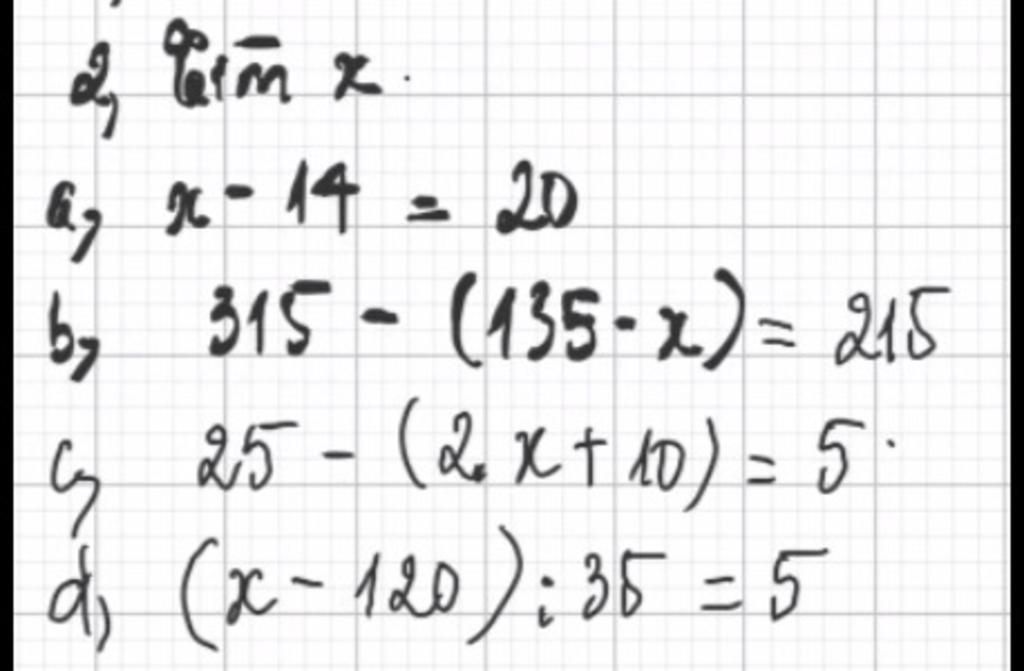 2, Tìm x.
a, x - 14 = 20
b, 315 - (135 - x) = 215
c, 25 - (2. x + 10) = 5.
d, (x - 120) : 35 = 5